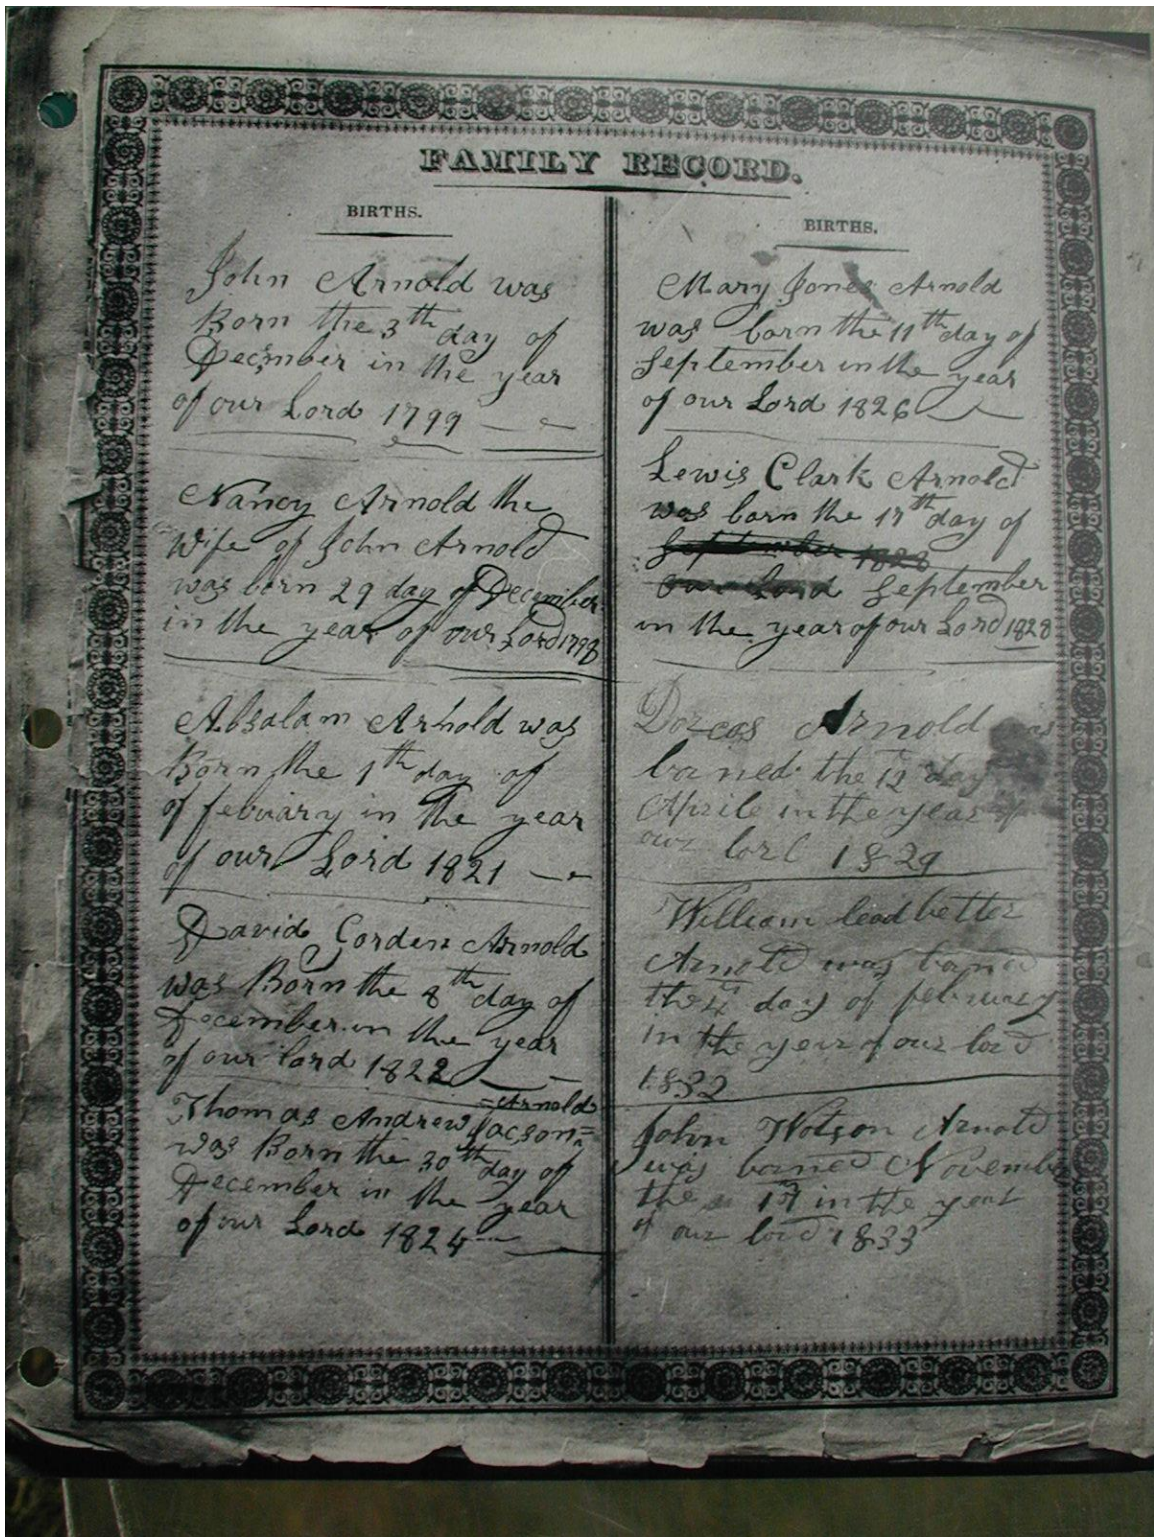 FAMILY RECORD.
BIRTHS.
John Arnold was
Born the 3th day of
December in the year
of our Lord 1799
Nancy Arnold the
Wife of John Arnold
was born 29 day of December
in the year of our Lord 1798
Absalam Arnold was
Born the 1th day of
of febuary in the year
of our Lord 1821
David Gorden Arnold
was Born the 8th day of
December in the year
of our lord 1822
=Arnold
Thomas Andrew Jacson=
was Born the 30th day of
December in the year
of our Lord 1824
BIRTHS.
Mary Jones Arnold
was born the 11th day of
September in the year
of our Lord 1826
Lewis Clark Arnold
was born the 17th day of
September 1828
our Lord September
in the year of our Lord 1828
Dorcos Arnold
borned the 12 day
Aprile in the year of
our lord 1829
William leadbetter
Arnold was borned
the 4 day of february
in the year of our lord
1832
John Wotson Arnold
was borned November
the 1st in the year
of our lord 1833